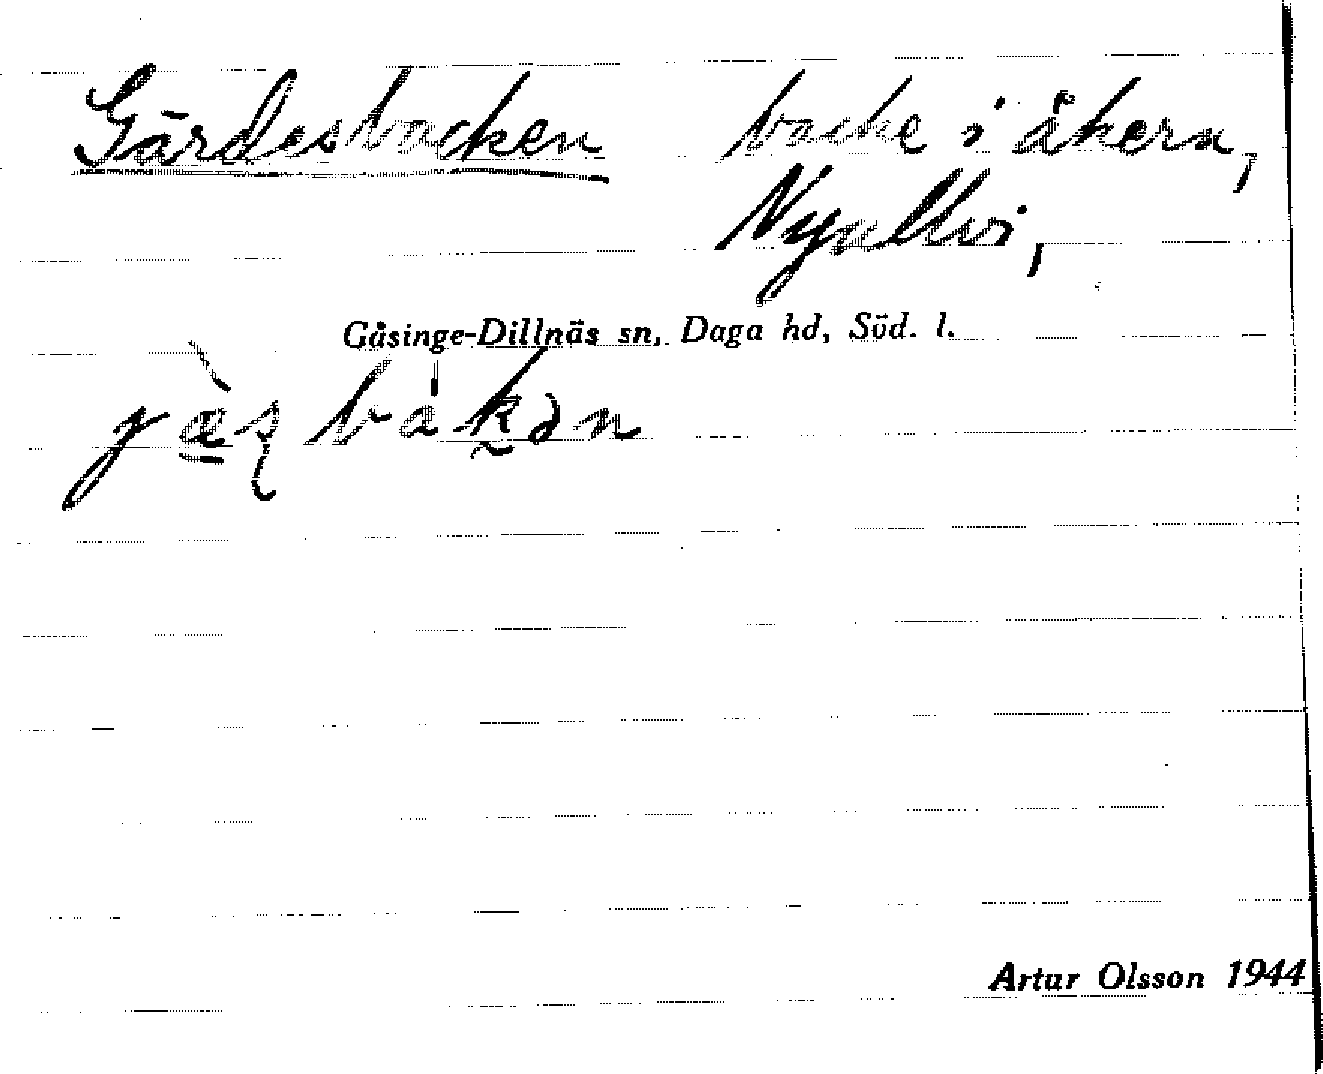 Gärdesbacken backe i åkern,
Nyallvi,
Gåsinge-Dillnäs sn, Daga hd, Söd. l.
Artur Olsson 1944